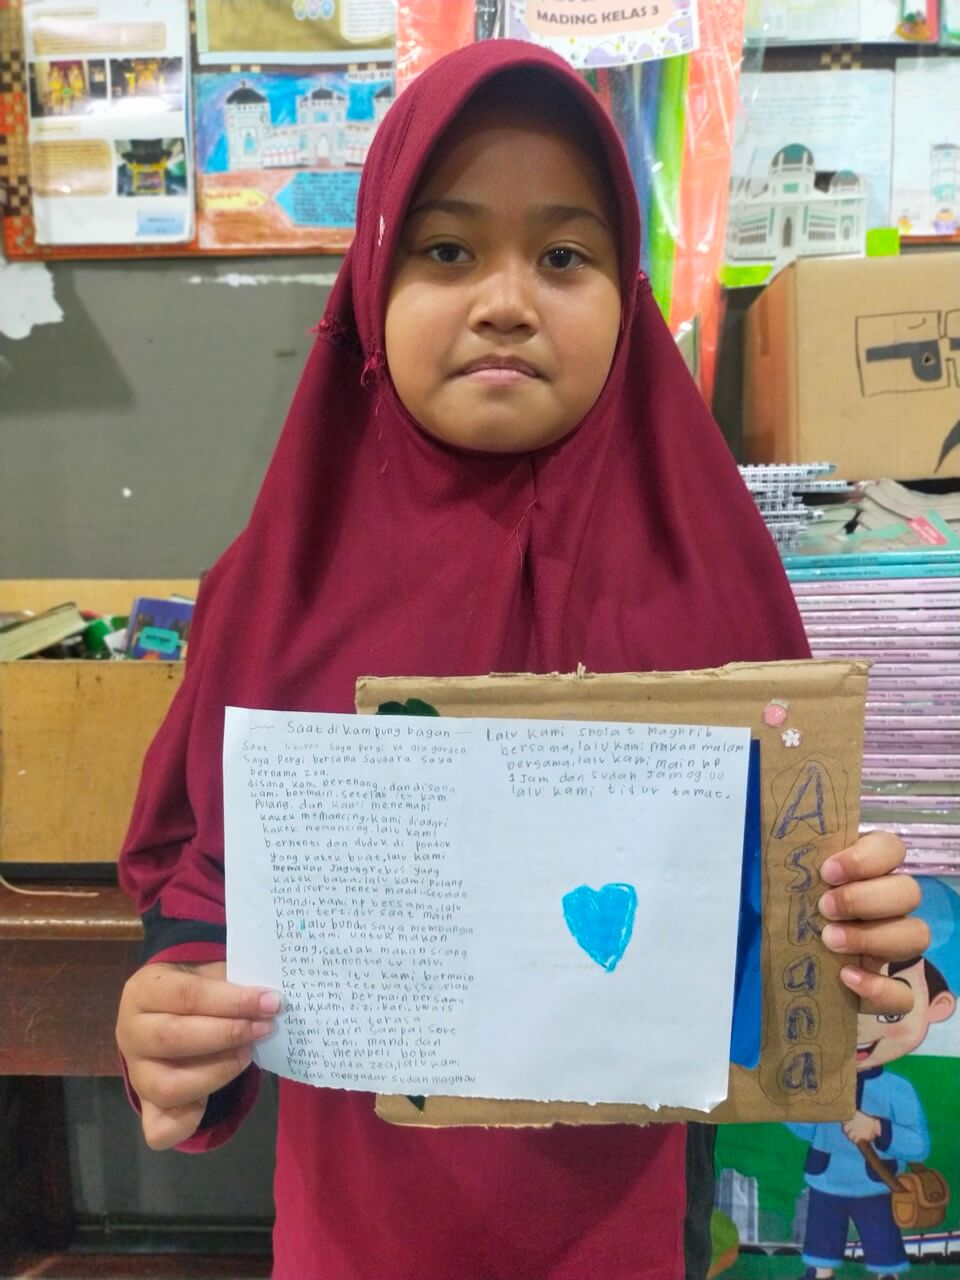 MADING KELAS 3
~~ Saat di kampung bagan ~~
Saat liburan saya pergi ke dra garden
Saya pergi bersama Saudara saya
bernama zea.
disana kami berenang, dan disana
kami bermain, setelah itu kami
pulang. dan kami menemani
kakek memancing. kami diajari
kakek memancing. lalu kami
berhenti dan duduk di pondok
yang kakek buat, lalu kami
memakan Jagung rebus yang
kakek bawa, lalu kami pulang
dan disuruh nenek mandi. setelah
mandi. kami hp bersama, lalu
kami tertidur saat main
hp. lalu bunda saya membangun
kan kami untuk makan
siang, setelah makan siang
kami menonton tv lalu
setelah itu kami bermain
kerumah tete wati setelah
itu kami bermain bersama
adik, kami zizi, kari, uwais
dan tidak terasa
kami main sampai sore
lalu kami mandi dan
kami membeli boba
punya bunda zea, lalu kami
tidak menyadar sudah maghrib
Lalu kami sholat maghrib
bersama, lalu kami makan malam
bersama, lalu kami main hp
1 Jam dan sudah Jam 09:00
lalu kami tidur tamat.
Askana